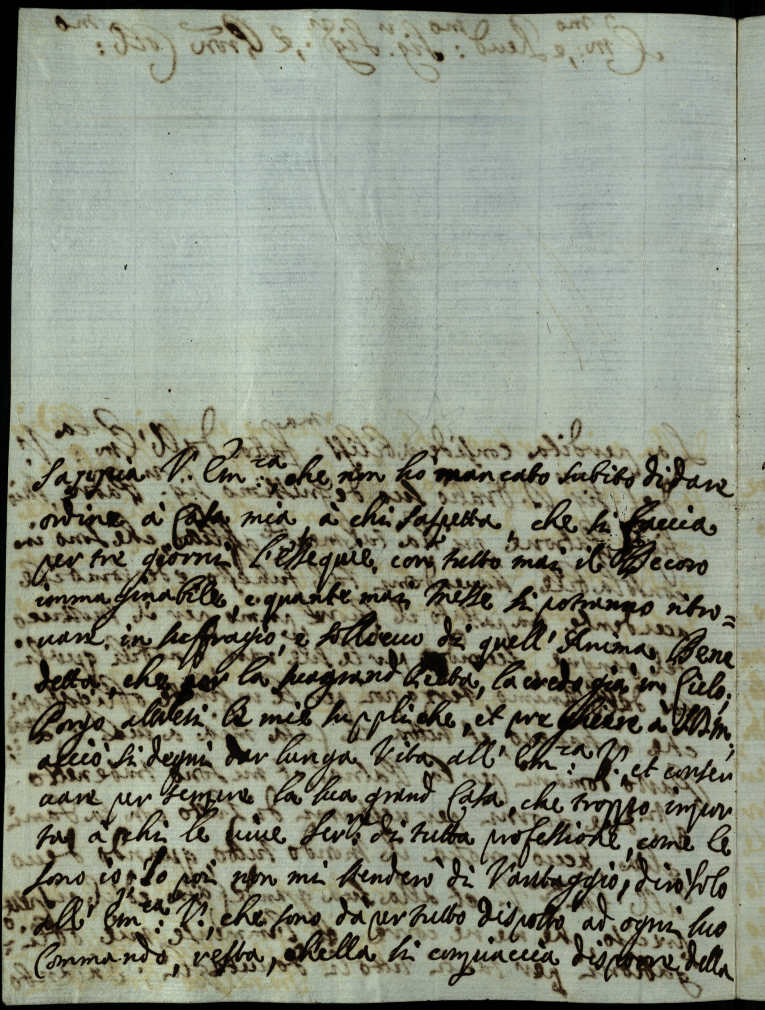 Sappia V. Em.za che non ho mancato subito di dare
ordine à Casa mia, à chi s'aspetta, che si faccia
per tre giorni l'essequie, con tutto mai il Decoro
immaginabile, e quante mai Messe si potranno ritro=
uare in suffragio, e sollieuo di quell'Anima Bene
detta, che per la sua grand bontà, la credo già in Cielo,
Porgo altresi le mie suppliche, et preghiere à
acciò si degni dar lunga Vita all'Em.za V., et conser
uare per sempre la sua grand Casa, che troppo impor
ta à chi le uiue Seru. di tutta professione, come le
sono io. Io poi non mi stenderò di Vantaggio, dirò solo
all'Em.za V., che sono da per tutto disposto ad ogni suo
Commando, resta, ch'ella si compiaccia disporre della